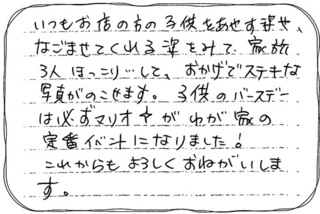 いつもお店の方の子供をあやす姿や、
なごませてくれる姿をみて、家族
3人ほっこり…して、おかげでステキな
写真がのこせます。子供のバースデー
は必ずマリオ☆がわが家の
定番イベントになりました！
これからもよろしくおねがいしま
す。